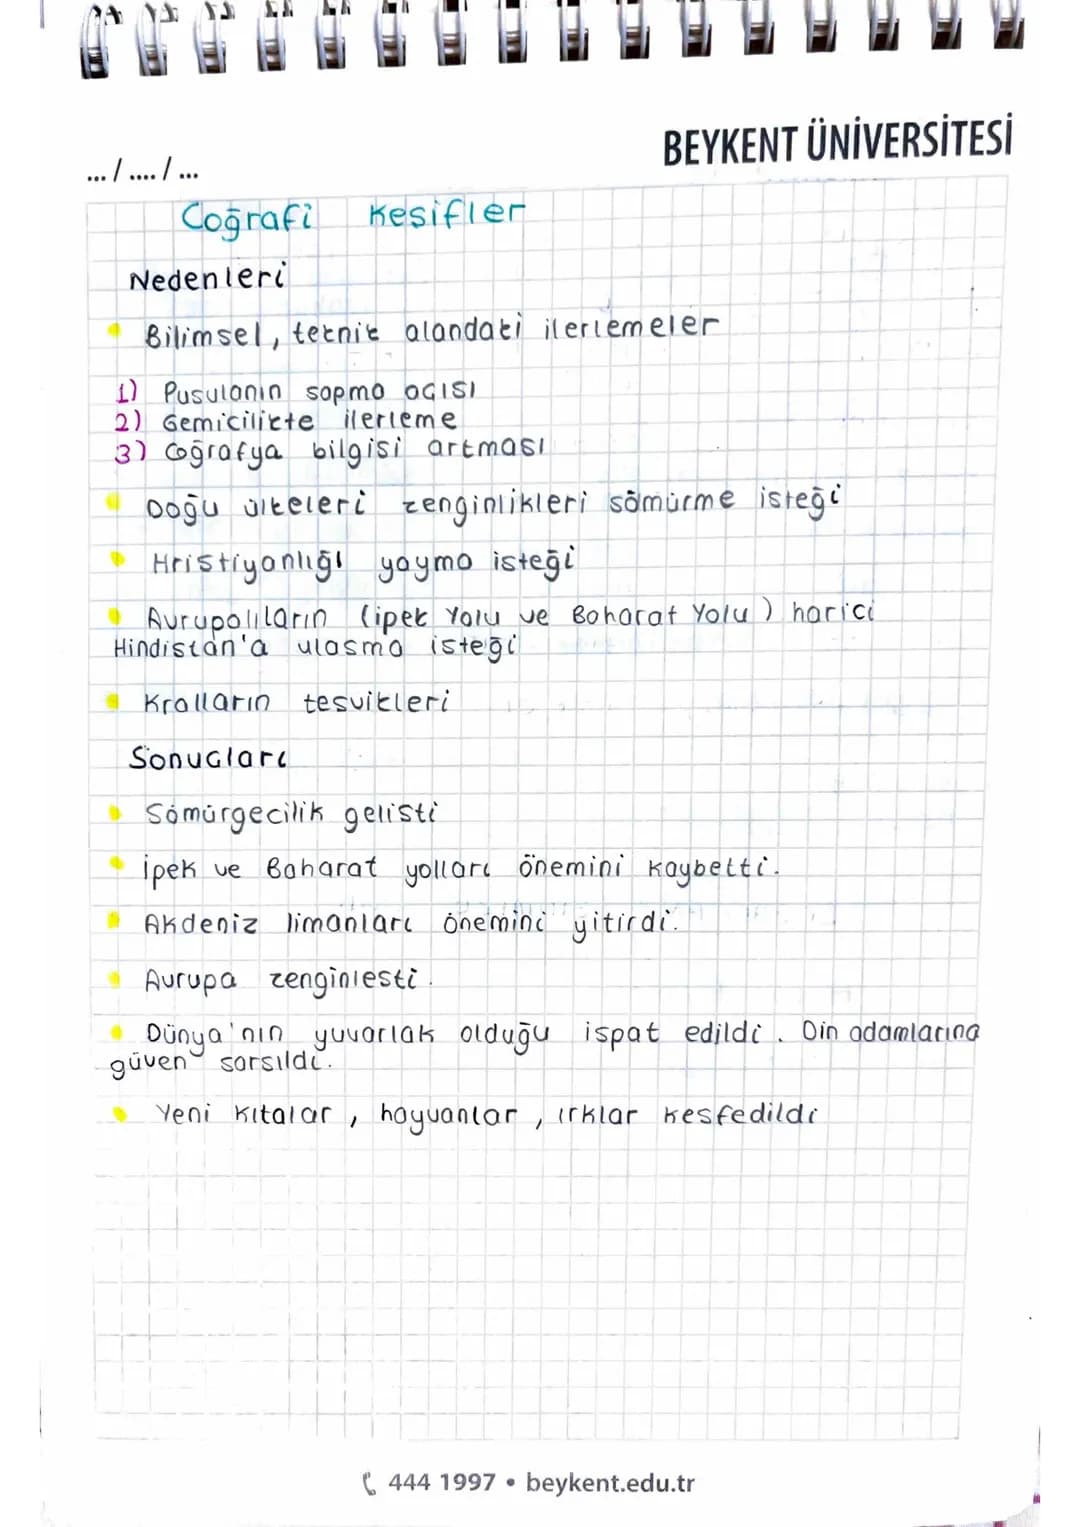 BEYKENT ÜNİVERSİTESİ
... / .... / ...
Coğrafi Kesifler
Nedenleri
Bilimsel, teknik alandaki ilerlemeler
1) Pusulanın sapma açısı
2) Gemicilikte ilerleme
3) Coğrafya bilgisi artması
Doğu ülkeleri zenginlikleri sömürme isteği
Hristiyanlığı yayma isteği
Avrupalıların (ipek Yolu ve Baharat Yolu) harici
Hindistan'a ulasma isteği
Kralların tesvikleri
Sonucları
Sömürgecilik gelisti
İpek ve Baharat yolları önemini kaybetti.
Akdeniz limanları önemini yitirdi.
Avrupa zenginlesti.
Dünya'nın yuvarlak olduğu ispat edildi. Din adamlarına
güven sarsıldı.
Yeni kıtalar, hayvanlar, ırklar kesfedildi
444 1997 • beykent.edu.tr